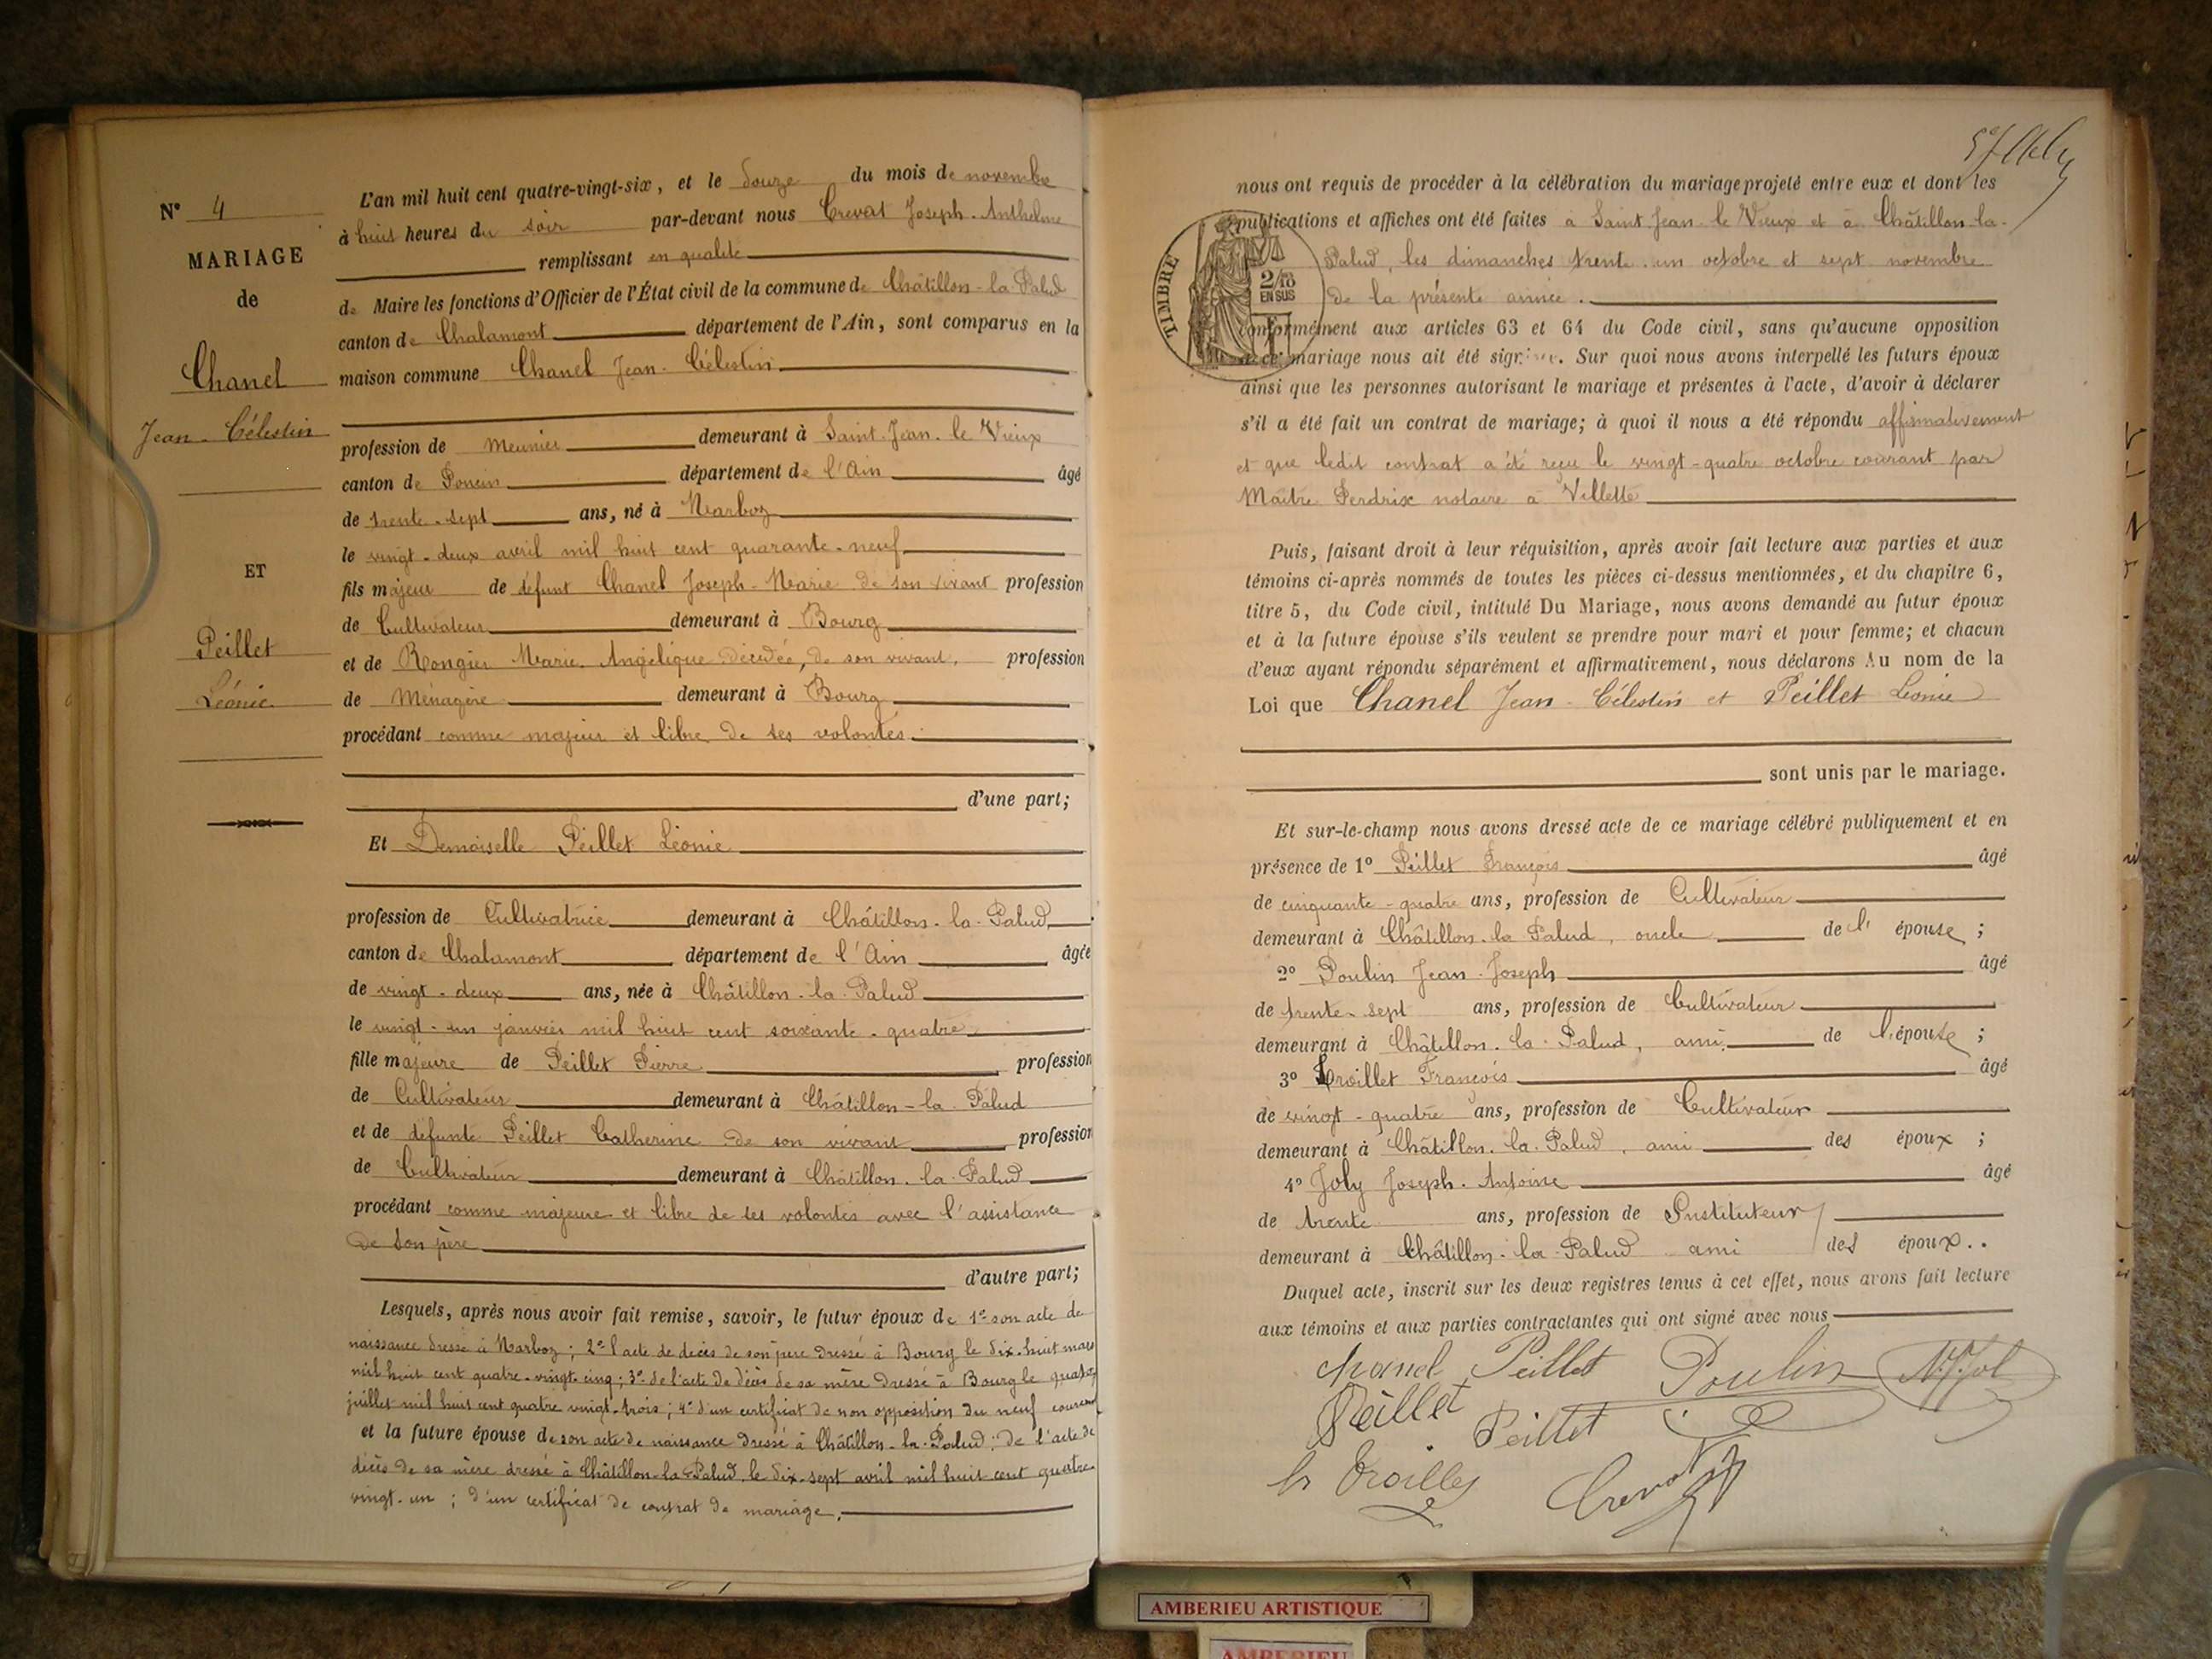 N° 4
MARIAGE
de
Chanel
Jean-Célestin
ET
Peillet
Léonie
L'an mil huit cent quatre-vingt-six, et le douze du mois de novembre
à huit heures du soir par-devant nous Crevat Joseph-Anthelme
remplissant en qualité
de Maire les fonctions d'Officier de l'État civil de la commune de Châtillon-la-Palud
canton de Chalamont département de l'Ain, sont comparus en la
maison commune Chanel Jean-Célestin
profession de Meunier demeurant à Saint-Jean-le Vieux
canton de Poncin département de l'Ain âgé
de trente-sept ans, né à Marboz
le vingt-deux avril mil huit cent quarante-neuf
fils majeur de défunt Chanel Joseph-Marie de son vivant profession
de Cultivateur demeurant à Bourg
et de Rongier Marie Angélique décédée, de son vivant, profession
de Ménagère demeurant à Bourg
procédant comme majeur et libre de ses volontés.
d'une part;
Et Demoiselle Peillet Léonie
profession de Cultivatrice demeurant à Châtillon-la-Palud
canton de Chalamont département de l'Ain âgée
de vingt-deux ans, née à Châtillon-la-Palud
le vingt-un janvier mil huit cent soixante-quatre
fille majeure de Peillet Pierre profession
de Cultivateur demeurant à Châtillon-la-Palud
et de défunte Peillet Catherine de son vivant profession
de Cultivateur demeurant à Châtillon-la-Palud
procédant comme majeure et libre de ses volontés avec l'assistance
de son père
d'autre part;
Lesquels, après nous avoir fait remise, savoir, le futur époux de 1° son acte de
naissance dressé à Marboz; 2° l'acte de décès de son père dressé à Bourg le dix-huit mars
mil huit cent quatre-vingt-cinq; 3° de l'acte de décès de sa mère dressé à Bourg le quatre
juillet mil huit cent quatre vingt-trois; 4° d'un certificat de non opposition du neuf courant
et la future épouse de son acte de naissance dressé à Châtillon-la-Palud; de l'acte de
décès de sa mère dressé à Châtillon-la-Palud, le dix-sept avril mil huit cent quatre
vingt-un; d'un certificat de contrat de mariage.
nous ont requis de procéder à la célébration du mariage projeté entre eux et dont les
publications et affiches ont été faites à Saint-Jean-le Vieux et à Châtillon-la-
Palud, les dimanches trente-un octobre et sept novembre
de la présente année.
TIMBRE
2/10
EN SUS
conformément aux articles 63 et 64 du Code civil, sans qu'aucune opposition
à ce mariage nous ait été signifiée. Sur quoi nous avons interpellé les futurs époux
ainsi que les personnes autorisant le mariage et présentes à l'acte, d'avoir à déclarer
s'il a été fait un contrat de mariage; à quoi il nous a été répondu affirmativement
et que ledit contrat a été reçu le vingt-quatre octobre courant par
Maître Perdrix notaire à Villette
Puis, faisant droit à leur réquisition, après avoir fait lecture aux parties et aux
témoins ci-après nommés de toutes les pièces ci-dessus mentionnées, et du chapitre 6,
titre 5, du Code civil, intitulé Du Mariage, nous avons demandé au futur époux
et à la future épouse s'ils veulent se prendre pour mari et pour femme; et chacun
d'eux ayant répondu séparément et affirmativement, nous déclarons Au nom de la
Loi que Chanel Jean-Célestin et Peillet Léonie
sont unis par le mariage.
Et sur-le-champ nous avons dressé acte de ce mariage célébré publiquement et en
présence de 1° Peillet François âgé
de cinquante-quatre ans, profession de Cultivateur
demeurant à Châtillon-la Palud, oncle de l' épouse;
2° Poulin Jean-Joseph âgé
de trente-sept ans, profession de Cultivateur
demeurant à Châtillon-la-Palud, ami de l'épouse;
3° Troillet François âgé
de vingt-quatre ans, profession de Cultivateur
demeurant à Châtillon-la-Palud, ami des époux;
4° Joly Joseph-Antoine âgé
de trente ans, profession de Instituteur
demeurant à Châtillon-la-Palud ami des époux..
Duquel acte, inscrit sur les deux registres tenus à cet effet, nous avons fait lecture
aux témoins et aux parties contractantes qui ont signé avec nous
Chanel Peillet Poulin
Peillet Peillet
Crevat
AMBERIEU ARTISTIQUE
AMBERIEU